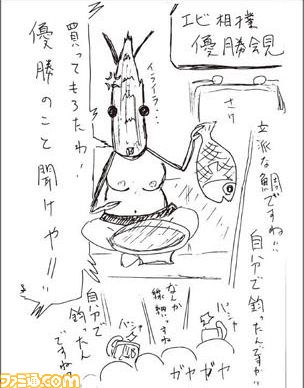 エビ相撲
優勝会見
立派な鯛ですね!!
自分で釣ったんですか!!
イライラ…
買ってもろたわ!
優勝のこと聞けや!!
なんか
線細いですね
自分で
釣ったん
ですね
パシャ
パシャ
ガヤガヤ
ファミ通.com